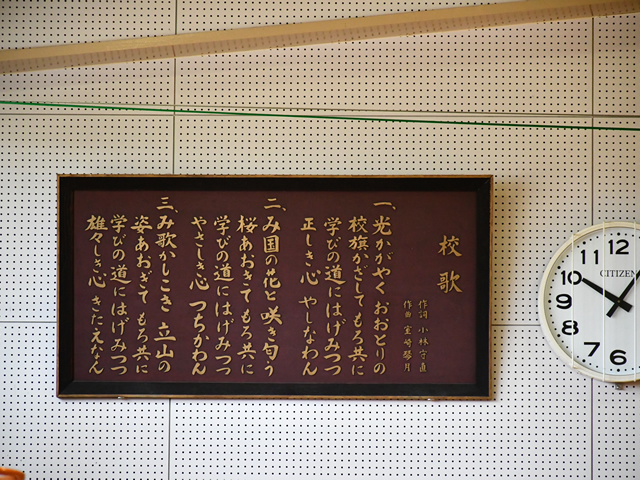 校歌
作詞 小林守直
作曲 室崎琴月
一、光かがやく おおとりの
校旗かざして もろ共に
学びの道に はげみつつ
正しき心 やしなわん
二、み国の花と 咲き匂う
桜あおぎて もろ共に
学びの道に はげみつつ
やさしき心 つちかわん
三、み歌かしこき 立山の
姿あおぎて もろ共に
学びの道に はげみつつ
雄々しき心 きたえなん
12
11
10
9
8
7
6
CITIZEN